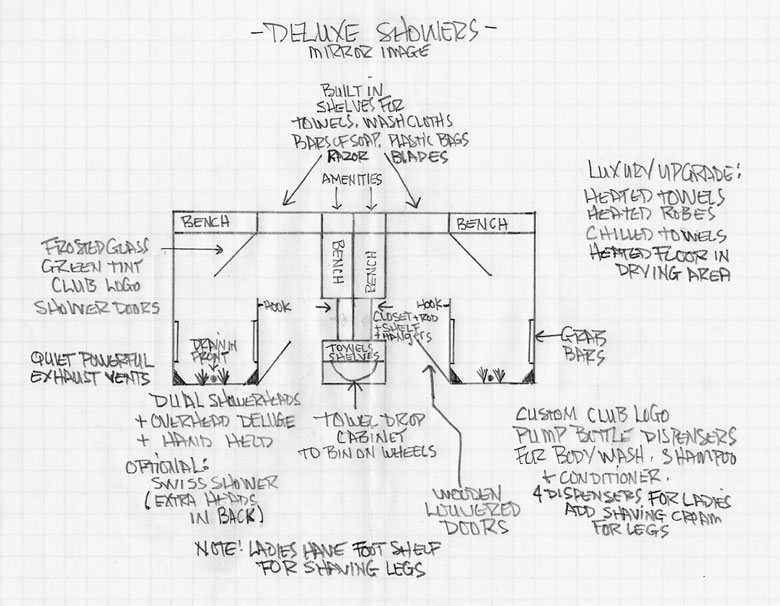 -DELUXE SHOWERS-
MIRROR IMAGE
BUILT IN
SHELVES FOR
TOWELS, WASHCLOTHS
BARS OF SOAP, PLASTIC BAGS
RAZOR BLADES
AMENITIES
LUXURY UPGRADE:
HEATED TOWELS
HEATED ROBES
CHILLED TOWELS
HEATED FLOOR IN
DRYING AREA
BENCH
BENCH
BENCH
BENCH
FROSTED GLASS
GREEN TINT
CLUB LOGO
SHOWER DOORS
HOOK
HOOK
CLOSET + ROD
+ SHELF
+ HANGERS
DRAIN IN
FRONT
TOWELS
SHELVES
GRAB
BARS
QUIET POWERFUL
EXHAUST VENTS
DUAL SHOWERHEADS
+ OVERHEAD DELUGE
+ HAND HELD
OPTIONAL:
SWISS SHOWER
(EXTRA HEADS
IN BACK)
TOWEL DROP
CABINET
TO BIN ON WHEELS
WOODEN
LOUVERED
DOORS
CUSTOM CLUB LOGO
PUMP BOTTLE DISPENSERS
FOR BODY WASH, SHAMPOO
+ CONDITIONER.
4 DISPENSERS FOR LADIES
ADD SHAVING CREAM
FOR LEGS
NOTE! LADIES HAVE FOOT SHELF
FOR SHAVING LEGS